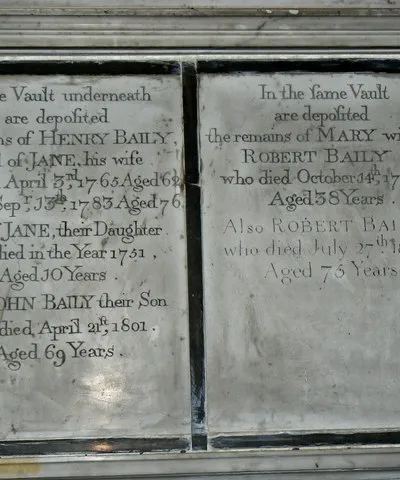 e Vault underneath
are depoſited
ns of HENRY BAILY
l of JANE, his wife
April 3rd, 1765 Aged 62
Sepr. 13th, 1783 Aged 76
JANE, their Daughter
ied in the Year 1751,
Aged 10 Years.
OHN BAILY their Son
died, April 21ſt, 1801.
Aged 69 Years.
In the ſame Vault
are depoſited
the remains of MARY wi
ROBERT BAILY
who died October 14th, 17
Aged 38 Years.
Also ROBERT BAI
who died July 27th 18
Aged 75 Years